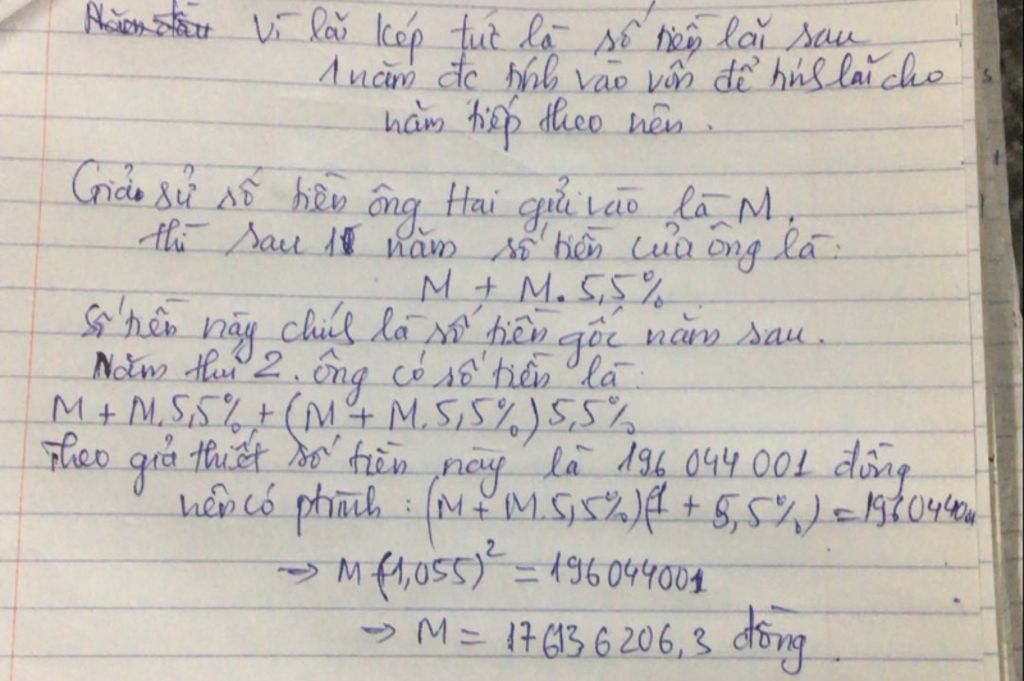 Vì lãi kép tức là số tiền lãi sau
1 năm đc tính vào vốn để tính lãi cho
năm tiếp theo nên.
Giả sử số tiền ông Hai gửi vào là M.
thì sau 1 năm số tiền của ông là:
M + M. 5,5%
Số tiền này chính là số tiền gốc năm sau.
Năm thứ 2. ông có số tiền là:
M + M.5,5% + (M + M.5,5%) 5,5%
Theo giả thiết số tiền này là 196 044 001 đồng
nên có ptrình : (M + M.5,5%)(1 + 5,5%) = 196044001
→ M (1,055)² = 196044001
→ M = 176136206,3 đồng.